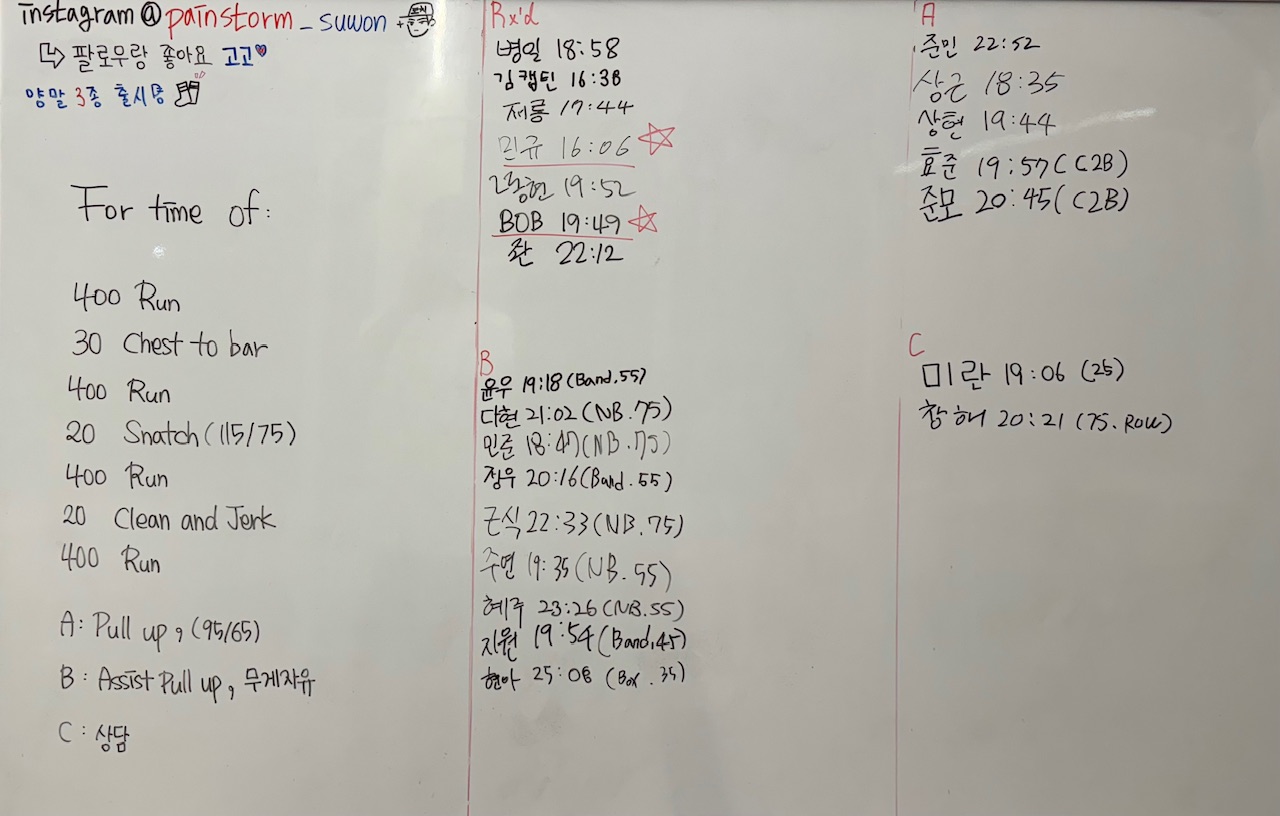 instagram @ painstorm_suwon
팔로우랑 좋아요 고고
양말 3종 출시중
For time of:
400 Run
30 Chest to bar
400 Run
20 Snatch (115/75)
400 Run
20 Clean and Jerk
400 Run
A: Pull up, (95/65)
B: Assist Pull up, 무게자유
C: 상담
Rx'd
병일 18:58
김캡틴 16:38
제롱 17:44
민규 16:06
19:52
BOB 19:49
좐 22:12
B
윤우 19:18 (Band.55)
다현 21:02 (NB.75)
인준 18:47 (NB.75)
장우 20:16 (Band.55)
근식 22:33 (NB.75)
주연 19:35 (NB.55)
혜주 23:26 (NB.55)
지원 19:54 (Band.45)
현아 25:08 (Box.35)
A
준민 22:52
상근 18:35
상현 19:44
효준 19:57 (C2B)
준모 20:45 (C2B)
C
미란 19:06 (25)
창해 20:21 (75.Row)